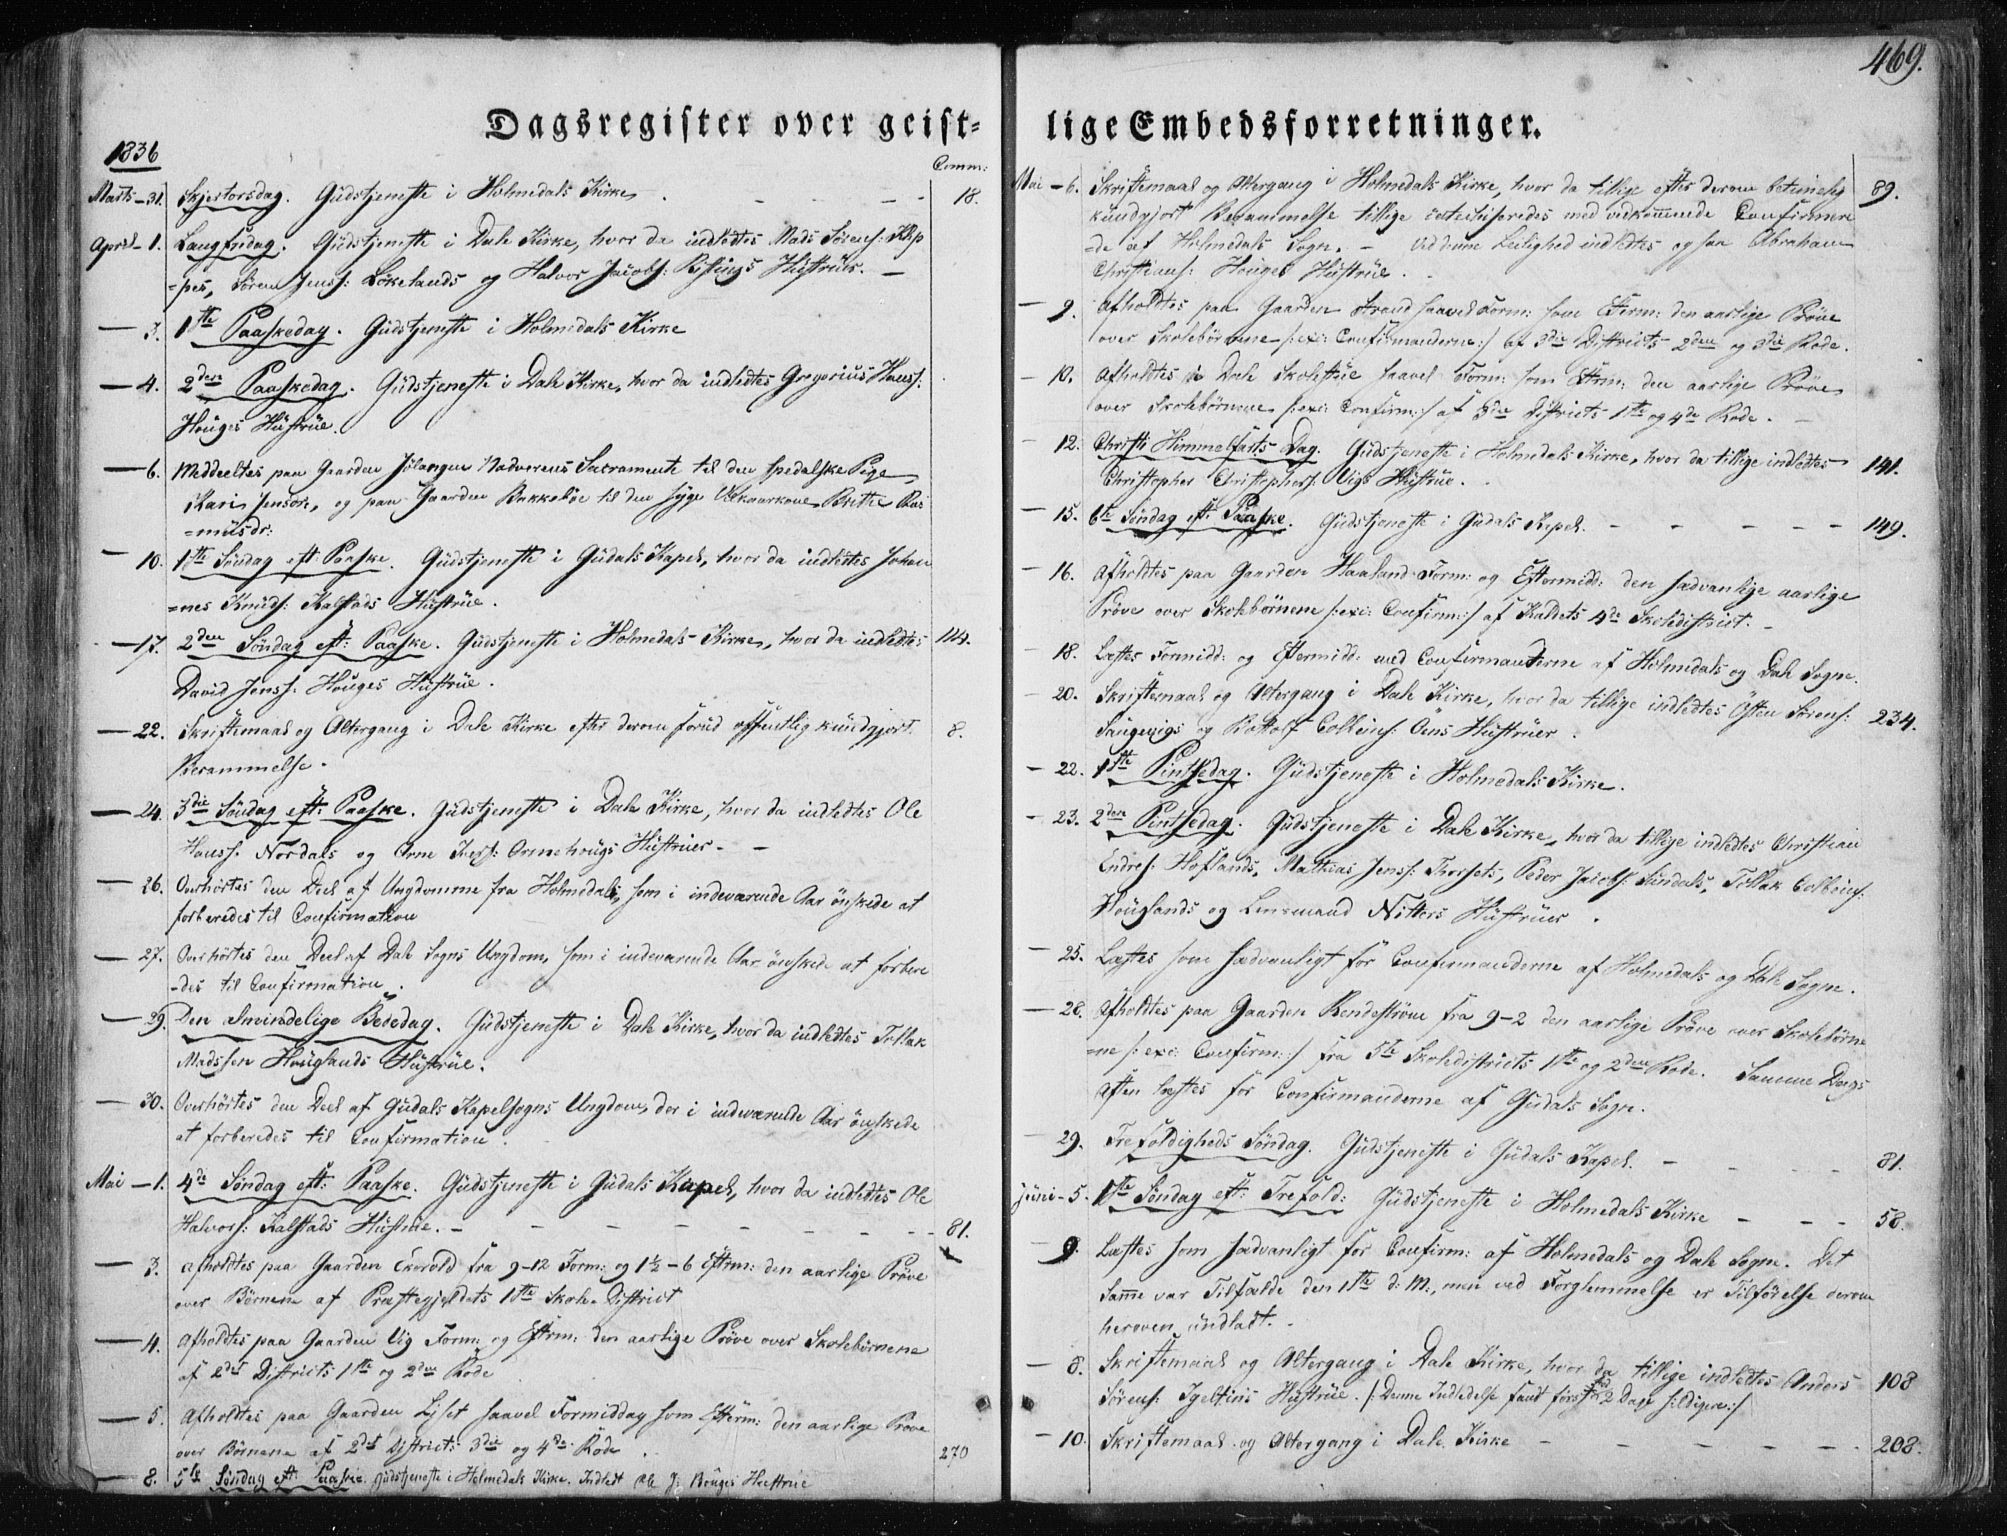 469.
Dagsregister over geist-
lige Embedsforretninger.
1836
Comm:
Marts - 31. Skjertorsdag. Gudstjeneste i Holmedals Kirke 18.
April - 1. Langfredag. Gudstjeneste i Dale Kirke, hvor da indledtes Mads Sørens: Klep
=pes, Søren Jenss: Løkelands og Halvor Jacobs: Hustruer.
3. 1ste Paaskedag. Gudstjeneste i Holmedals Kirke
4. 2den Paaskedag. Gudstjeneste i Dale Kirke, hvor da indledtes Gregorius Hans:
Houges Hustrue.
6. Meddeeltes paa Gaarden Nadverens Sacramente til den spedalske Pige
Kari Jensdr:, og paa Gaarden Bakkebøe til den syge Brithe Ras
=musdr:
10. 1ste Søndag eft: Paaske. Gudstjeneste i Gudals Kapel, hvor da indledtes Johan
=nes Knuds: Kalstads Hustrue.
17. 2den Søndag eft: Paaske. Gudstjeneste i Holmedals Kirke, hvor da indledtes 124.
David Jenss: Houges Hustrue.
22. Skriftemaal og Altergang i Dale Kirke efter derom forud offentlig kundgjort 8.
Berammelse.
24. 3die Søndag eft: Paaske. Gudstjeneste i Dale Kirke, hvor da indledtes Ole
Hanss. Nordals og Arne Hustruer
26. Overhørtes den Deel af Ungdomme fra Holmedals, som i indeværende Aar ønskede at
forberedes til Confirmation
27. Overhørtes den Deel af Dale Sogns Ungdom, som i indeværende Aar ønskede at forbere
-des til Confirmation.
29. Den almindelige Bededag. Gudstjeneste i Dale Kirke, hvor da indledtes Tollak
Madssen Houglands Hustrue.
30. Overhørtes den Deel af Gudals Kapelsogns Ungdom, der i indeværende Aar ønskede
at forberedes til Confirmation.
Mai - 1. 4de Søndag eft: Paaske. Gudstjeneste i Gudals Kapel, hvor da indledtes Ole
Halvors: Kalstads Hustrue. 81.
3. Afholdtes paa Gaarden fra 9-12 Form: og 1½-6 Eftrm: den aarlige Prøve
over Børnene af Præstegjeldets 1ste Skole-District
4. Afholdtes paa Gaarden Vig Form: og Eftrm: den aarlige Prøve over Skolebørnene
af 2det Districts 1ste og 2den Rode
5. Afholdtes paa Gaarden saavel Formiddag som Efterm: den aarlige Prøve
over Børnene af 2det District: 3die og 4de Rode. 270
8. 5te Søndag eft: Paaske. Gudstjeneste i Holmedals Kirke. Indledt Ole J: Houges Hustrue
Mai - 6. Skriftemaal og Altergang i Holmedals Kirke, hvor da tillige efter derom betimelig 89.
kundgjort Berammelse tillige med vedkommende Confirmere
=de af Holmedals Sogn. - Ved denne Leilighed indledtes ogsaa Abraham
Christians: Houges Hustrue.
9. Afholdtes paa Gaarden Strand saavel Form: som Efterm: den aarlige Prøve
over Skolebørnene /:exc: Confirmanderne:/ af 3die Districts 2den og 3die Rode.
10. Afholdtes i Dale Skolestue saavel Form: som Eftrm: den aarlige Prøve
over Skolebørnene /:exc: Confirm:/ af 3die Districts 1ste og 4de Rode.
12. Christi Himmelfarts-Dag. Gudstjeneste i Holmedals Kirke, hvor da tillige indledtes 141.
Christopher Christophers: Vigs Hustrue.
15. 6te Søndag eft: Paaske. Gudstjeneste i Gudals Kapel. 149.
16. Afholdtes paa Gaarden Haaland Form: og Eftermidd: den sædvanlige aarlige
Prøve over Skolebørnene /:exc: Confirm:/ af Kaldets 4de Skoledistrict.
18. Læstes Formidd: og Eftermidd: med Confirmanderne af Holmedals og Dale Sogne.
20. Skriftemaal og Altergang i Dale Kirke, hvor da tillige indledtes Østen Sørens: 234.
og Hustruer.
22. 1ste Pintsedag. Gudstjeneste i Holmedals Kirke.
23. 2den Pintsedag. Gudstjeneste i Dale Kirke, hvor da tillige indledtes Christian
Endres: Hoflands, Mathias Jenss: Thorsets, Peder Jacobs: Tollak Colbeins:
Houglands og Lensmand Nitters Hustruer.
25. Læstes som sædvanligt for Confirmanderne af Holmedals og Dale Sogne.
28. Afholdtes paa Gaarden fra 9-2 den aarlige Prøve over Skolebørne
=ne /:exc: Confirm:/ fra 5te Skoledistricts 1ste og 2den Rode. Samme Dags
Aften læstes for Confirmanderne af Gudals Sogn.
29. Trefoldigheds Søndag. Gudstjeneste i Gudals Kapel. 81.
Juni - 5. 1ste Søndag eft: Trefold: Gudstjeneste i Holmedals Kirke 58.
9. Læstes som sædvanligt for Confirm: af Holmedals og Dale Sogne. Det
samme var Tilfælde den 1ste d: M:, men ved Forglemmelse er Tilførelse derom
heroven undladt.
8. Skriftemaal og Altergang i Dale Kirke, hvor da tillige indledtes Anders 108
Sørens: Hustrue. /:Denne Indledelse fandt først 2 Dage sildigere:/
10. Skriftemaal og Altergang i Dale Kirke 208.